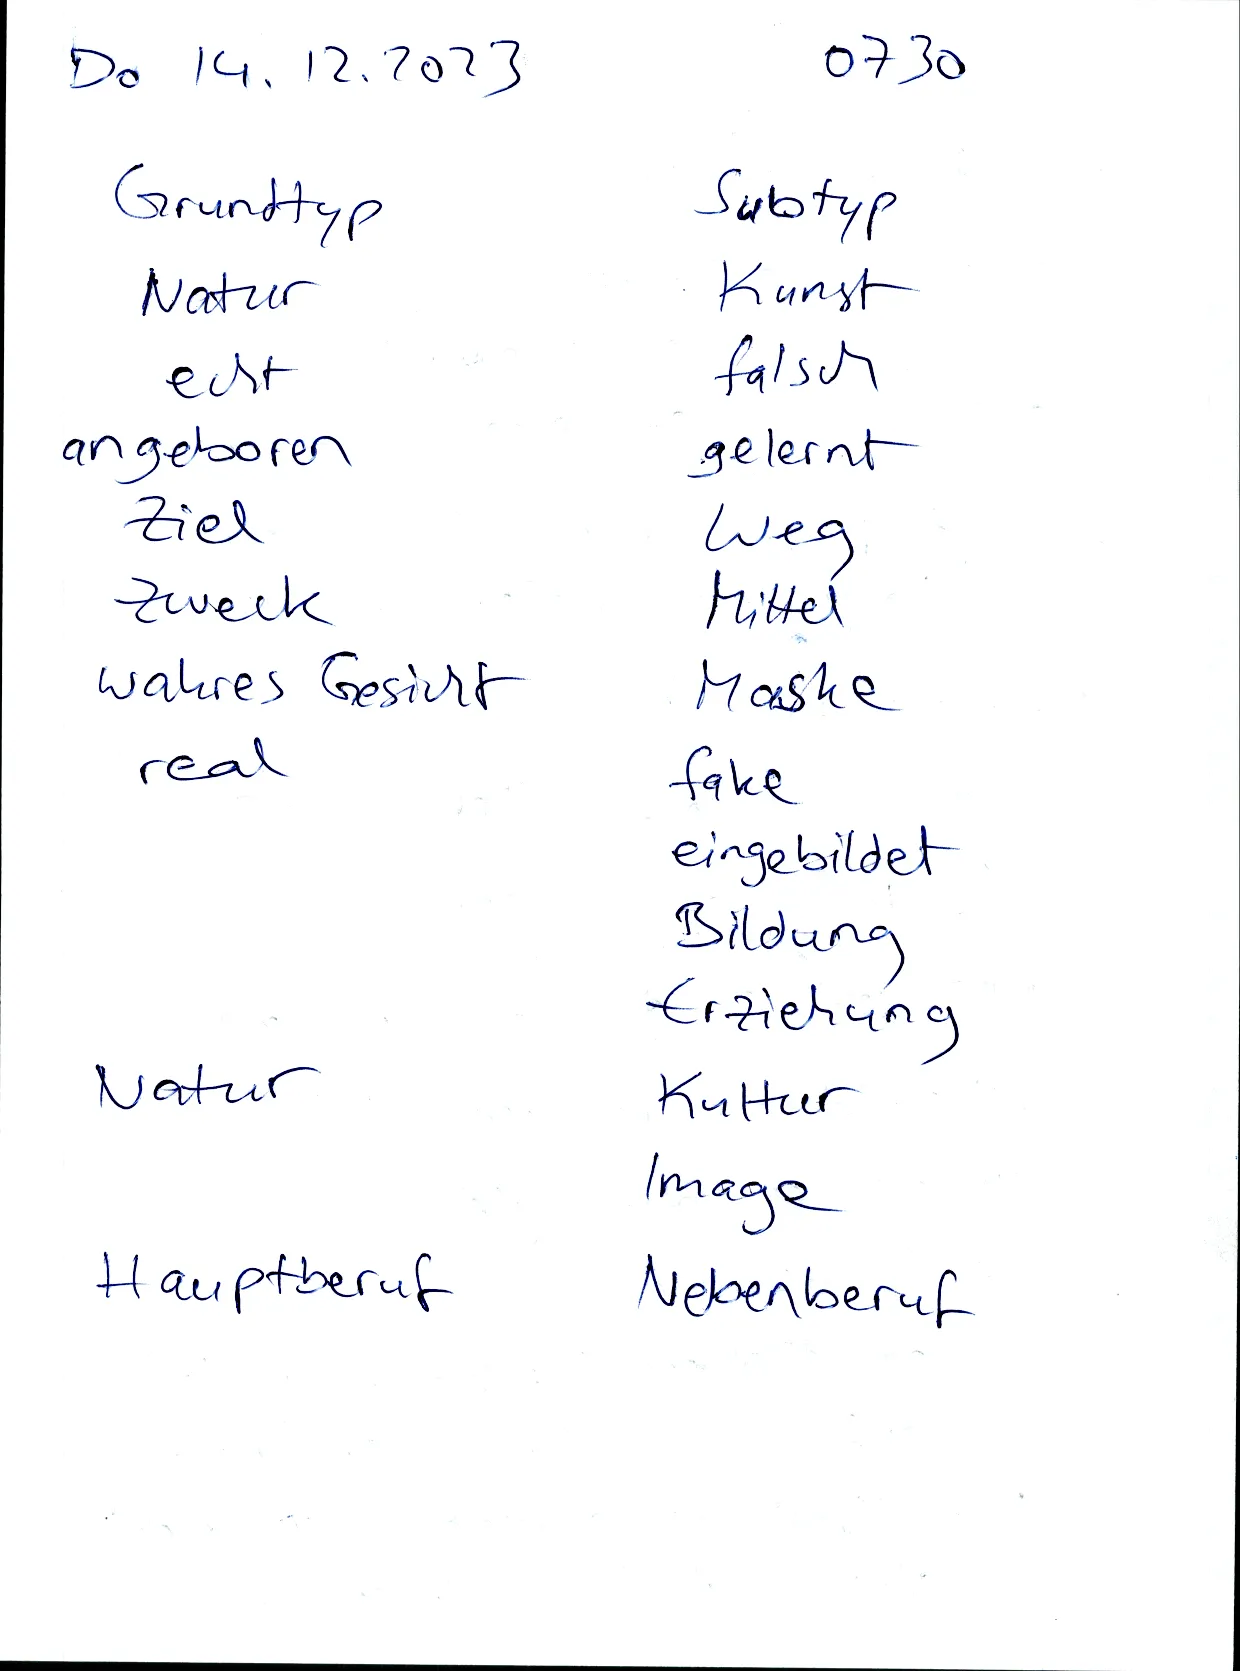 Do 14.12.2023 0730
Grundtyp Subtyp
Natur Kunst
echt falsch
angeboren gelernt
Ziel Weg
Zweck Mittel
wahres Gesicht Maske
real fake
eingebildet
Bildung
Erziehung
Natur Kultur
Image
Hauptberuf Nebenberuf